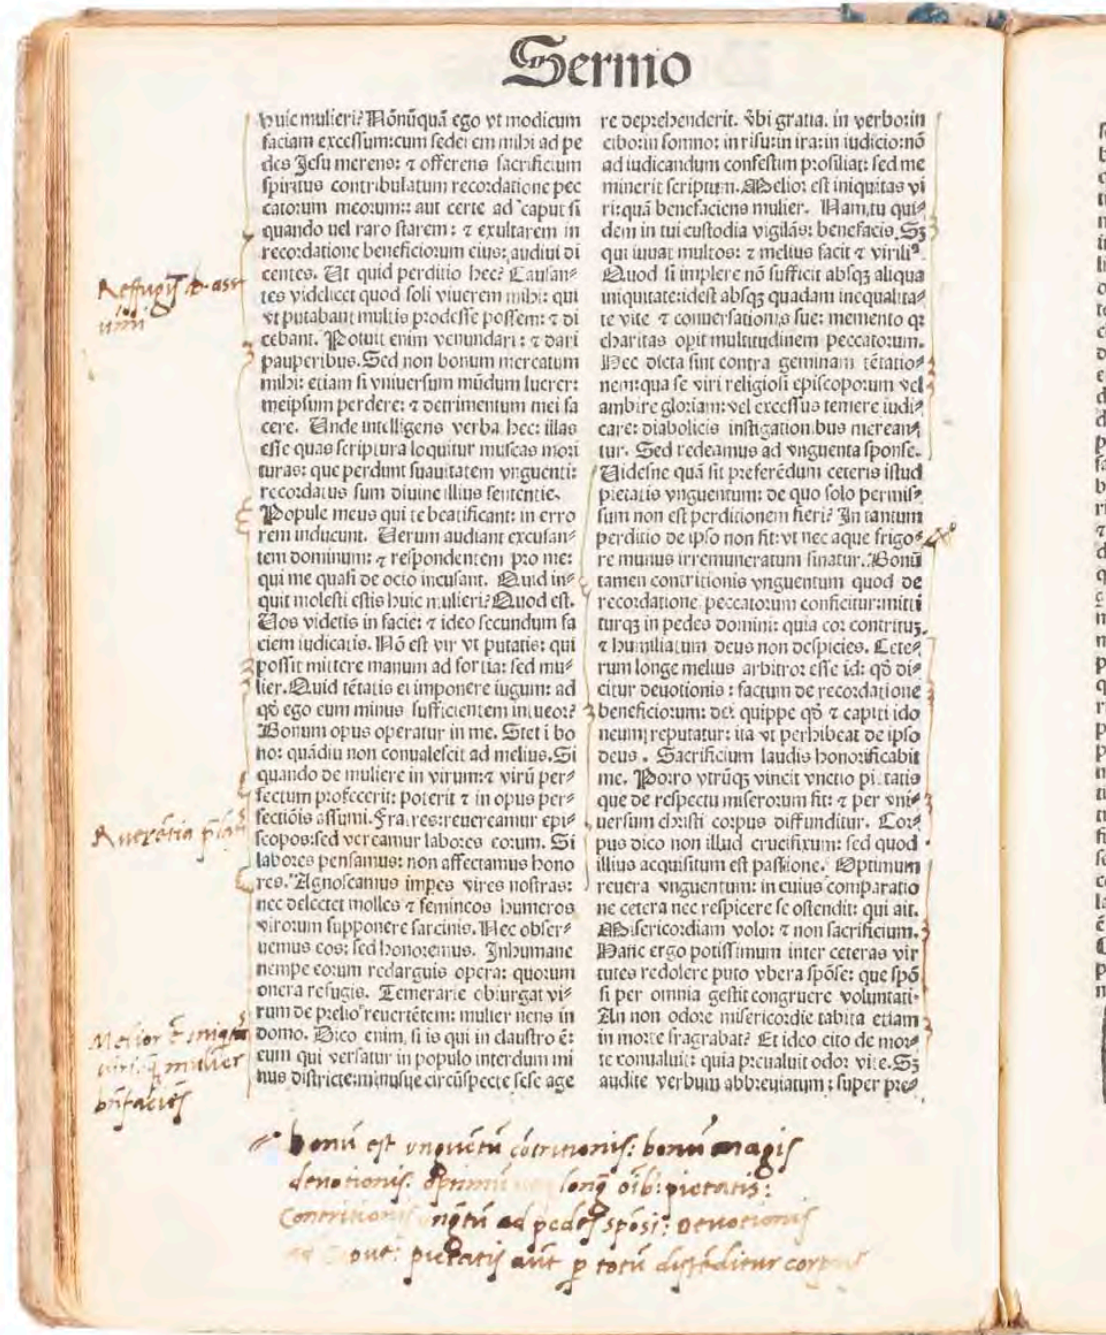 Sermo
huic mulieri? Nōnūquā ego vt modicum
faciam excessum: cum sederem mihi ad pe
des Jesu merens: ⁊ offerens sacrificium
spiritus contribulatum recordatione pec
catorum meorum:: aut certe ad caput si
quando uel raro starem: ⁊ exultarem in
recordatione beneficiorum eius: audiui di
centes. Ut quid perditio hec? Causan⸗
tes videlicet quod soli viuerem mihi: qui
vt putabant multis prodesse possem: ⁊ di
cebant. Potuit enim venundari: ⁊ dari
pauperibus. Sed non bonum mercatum
mihi: etiam si vniuersum mūdum lucrer:
meipsum perdere: ⁊ detrimentum mei fa
cere. Unde intelligens verba hec: illas
esse quas scriptura loquitur muscas mori
turas: que perdunt suauitatem vnguenti:
recordatus sum diuine illius sententie.
Popule meus qui te beatificant: in erro
rem inducunt. Uerum audiant excusan⸗
tem dominum: ⁊ respondentem pro me:
qui me quasi de ocio incusant. Quid in⸗
quit molesti estis huic mulieri? Quod est.
Uos videtis in facie: ⁊ ideo secundum fa
ciem iudicatis. Nō est vir vt putatis: qui
possit mittere manum ad fortia: sed mu⸗
lier. Quid tētatis ei imponere iugum: ad
qđ ego eum minus sufficientem intueor?
Bonum opus operatur in me. Stet i bo
no: quādiu non conualescit ad melius. Si
quando de muliere in virum: ⁊ virū per⸗
fectum profecerit: poterit ⁊ in opus per⸗
fectiōis assumi. Fratres: reuereamur epi⸗
scopos: sed vereamur labores eorum. Si
labores pensamus: non affectamus hono
res. Agnoscamus impes vires nostras:
nec delectet molles ⁊ femineos humeros
virorum supponere sarcinis. Nec obser⸗
uemus eos: sed honoremus. Inhumane
nempe eorum redarguis opera: quorum
onera refugis. Temerarie obiurgat vi⸗
rum de prelio reuertētem: mulier nens in
domo. Dico enim, si is qui in claustro ē:
eum qui versatur in populo interdum mi
nus districte: minusue circūspecte sese age
re deprehenderit. vbi gratia. in verbo: in
cibo: in somno: in risu: in ira: in iudicio: nō
ad iudicandum confestim prosiliat: sed me
minerit scriptum. Melior est iniquitas vi
ri: quā benefaciens mulier. Nam tu qui⸗
dem in tui custodia vigilās: benefacis. Sꝫ
qui iuuat multos: ⁊ melius facit ⁊ viriliꝰ.
Quod si implere nō sufficit absqꝫ aliqua
iniquitate: idest absqꝫ quadam inequalita⸗
te vite ⁊ conuersationis sue: memento qꝛ
charitas opit multitudinem peccatorum.
Hec dicta sint contra geminam tētatio⸗
nem: qua se viri religiosi episcoporum vel
ambire gloriam: vel excessus temere iudi⸗
care: diabolicis instigationibus merean⸗
tur. Sed redeamus ad vnguenta sponse.
Uidesne quā sit preferēdum ceteris istud
pietatis vnguentum: de quo solo permis⸗
sum non est perditionem fieri? In tantum
perditio de ipso non fit: vt nec aque frigo⸗
re munus irremuneratum sinatur. Bonū
tamen contritionis vnguentum quod de
recordatione peccatorum conficitur: mitti
turqꝫ in pedes domini: quia cor contrituꝫ
⁊ humiliatum deus non despicies. Cete⸗
rum longe melius arbitror esse id: qđ di⸗
citur deuotionis: factum de recordatione
beneficiorum: de quippe qđ ⁊ capiti ido
neum reputatur: ita vt perhibeat de ipso
deus. Sacrificium laudis honorificabit
me. Porro vtrūqꝫ vincit vnctio pietatis
que de respectu miserorum fit: ⁊ per vni⸗
uersum christi corpus diffunditur. Cor⸗
pus dico non illud crucifixum: sed quod
illius acquisitum est passione. Optimum
reuera vnguentum: in cuius comparatio
ne cetera nec respicere se ostendit: qui ait.
Misericordiam volo: ⁊ non sacrificium.
Hanc ergo potissimum inter ceteras vir
tutes redolere puto vbera spōse: que spō
si per omnia gestit congruere voluntati.
An non odore misericordie tabita etiam
in morte fragrabat? Et ideo cito de mor⸗
te conualuit: quia preualuit odor vite. Sꝫ
audite verbum abbreuiatum: super pre⸗
Melior ē iniqtas
uiri q̄ mulier
bn̄faciēs
bonū est vnguētū cōtritionis: bonū magis
deuotionis: optimū longe oīb: pietatis:
Contritionis ungtū ad pedes spōsi: Deuotionis
ad caput: pietatis aūt p totū distēditur corpus